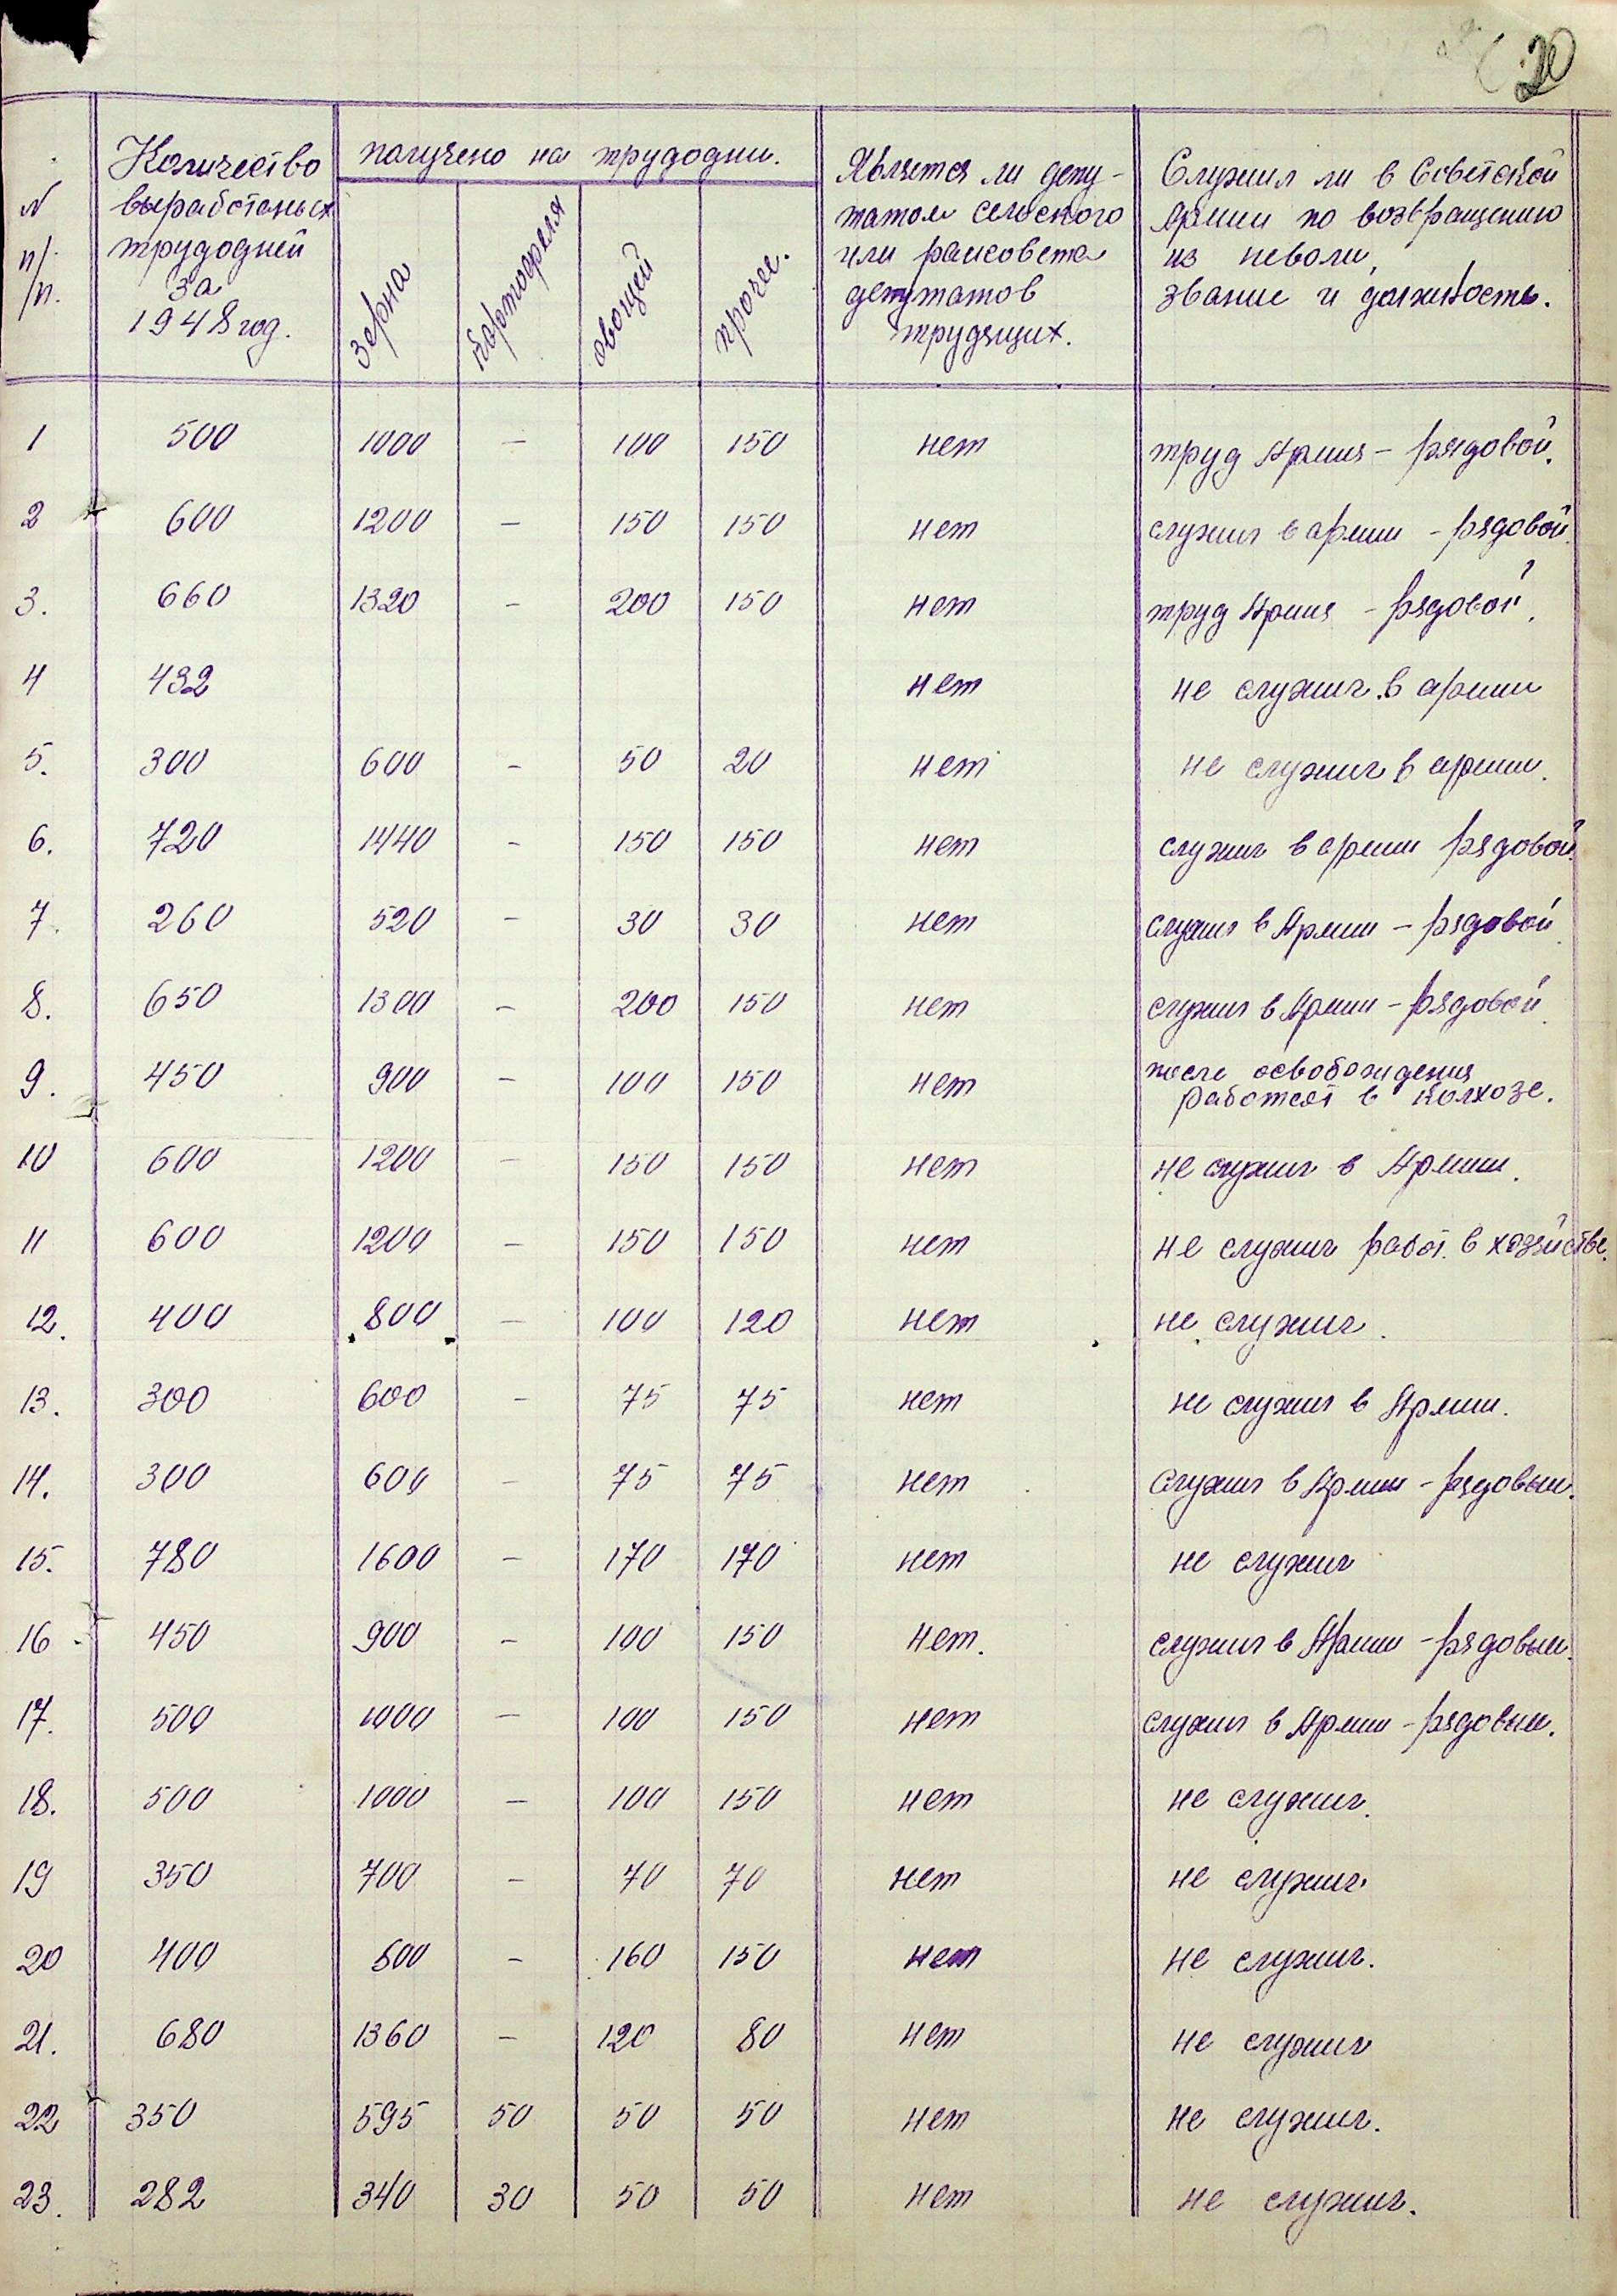 20
№ п/п.
Количество
выработаных
трудодней
за
1948 год.
получено на трудодни.
зерна
картофеля
овощей
прочее.
Является ли депу-
татом сельского
или райсовета
депутатов
трудящих.
Служил ли в Советской
Армии по возвращению
из неволи,
звание и должность.
1 500 1000 – 100 150 нет труд Армия – рядовой.
2 600 1200 – 150 150 нет служил в армии – рядовой.
3. 660 1320 – 200 150 нет труд Армия – рядовой.
4 432 нет не служил в армии
5. 300 600 – 50 20 нет не служил в армии.
6. 720 1440 – 150 150 нет служил в армии рядовой.
7. 260 520 – 30 30 нет служил в Армии – рядовой
8. 650 1300 – 200 150 нет служил в Армии – рядовой.
9. 450 900 – 100 150 нет после освобождения
работает в колхозе.
10 600 1200 – 150 150 нет не служил в Армии.
11 600 1200 – 150 150 нет не служил работ. в хозяйстве.
12. 400 800 – 100 120 нет не служил.
13. 300 600 – 75 75 нет не служил в Армии.
14. 300 600 – 75 75 нет служил в Армии – рядовым.
15. 780 1600 – 170 170 нет не служил
16 450 900 – 100 150 нет. служил в Армии – рядовым.
17. 500 1000 – 100 150 нет служил в Армии – рядовым.
18. 500 1000 – 100 150 нет не служил.
19 350 700 – 70 70 нет не служил.
20 400 800 – 160 150 нет не служил.
21. 680 1360 – 120 80 нет не служил
22 350 595 50 50 50 нет не служил.
23. 282 340 30 50 50 нет не служил.